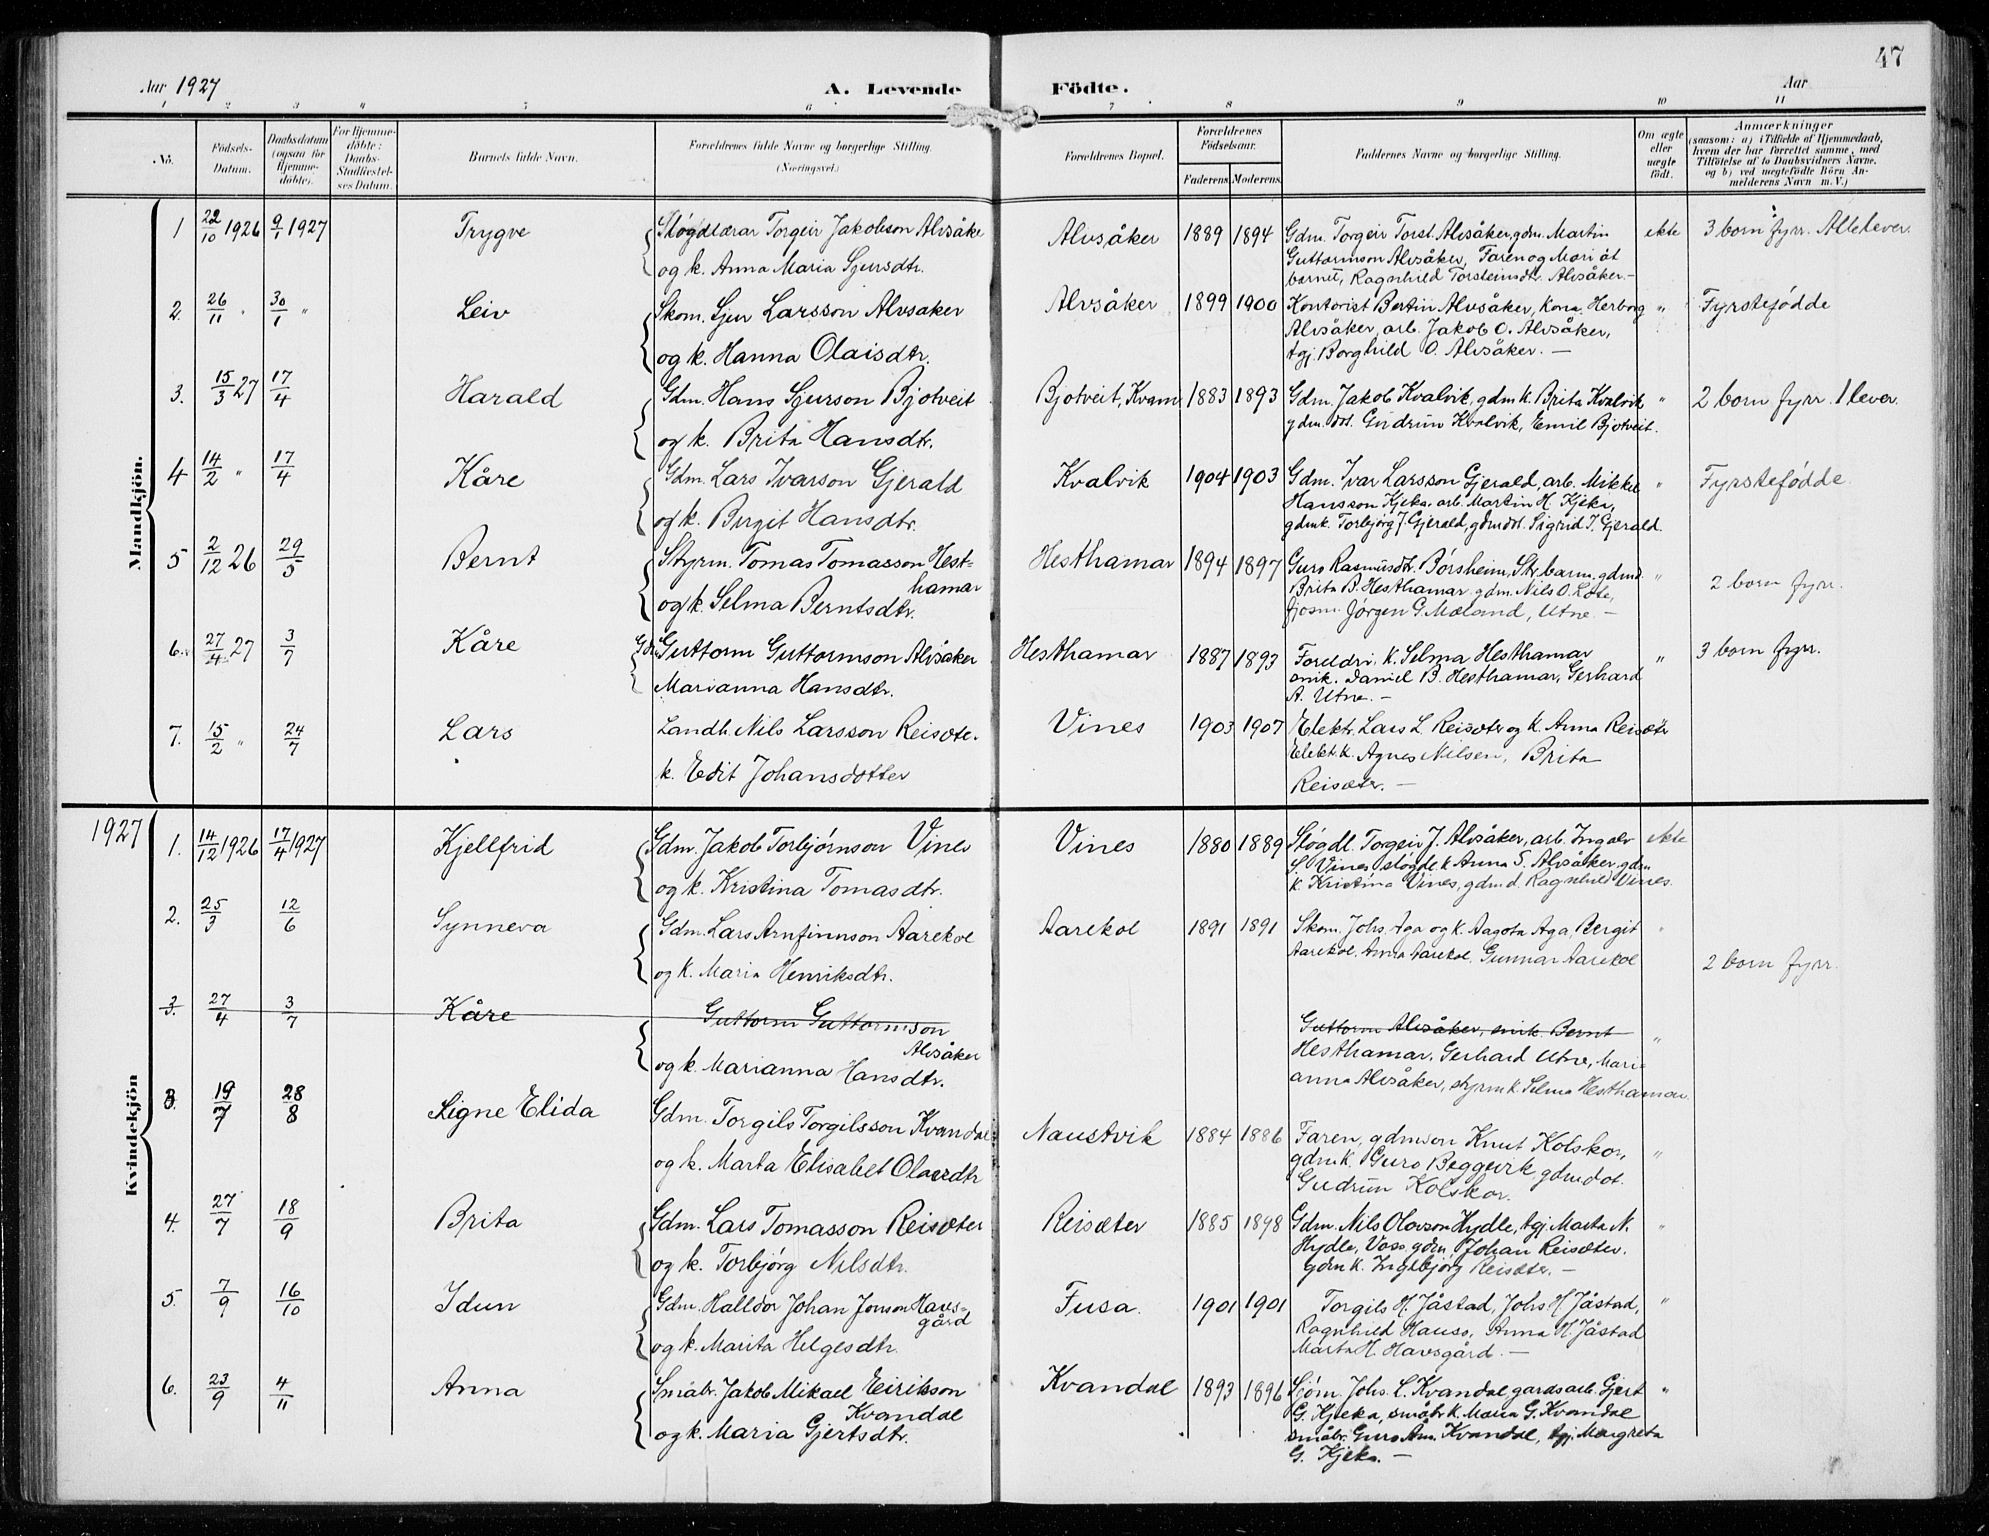 47
Aar 1927
A. Levende Födte.
Aar
1 2 3 " 5 6 7 8 9 10 11
No.
Födsels-Datum.
Daabsdatum (ogsaa for Hjemme-döbte).
For Hjemme-döbte: Daabs-Stadfæstel-ses Datum.
Barnets fulde Navn.
Forældrenes fulde Navne og borgerlige Stilling. (Næringsvei.)
Forældrenes Bopæl.
Forældrenes Födselsaar.
Faderens Moderens
Faddernes Navne og borgerlige Stilling.
Om ægte eller uægte födt.
Anmærkninger
(saasom: a) i Tilfælde af Hjemmedaab, hvem der har forrettet samme, med Tilföielse af to Daabsvidners Navne. og b) ved uegtefödte Börn An-melderens Navn m. V.)
Mandkjön.
1 22/10 1926 9/1 1927 Trygve
Sløgdlærar Torgeir Jakobson Alvsåke
og k. Anna Maria Sjursdtr.
Alvsåker 1889 1894
Gdm. Torgeir Torst. Alvsåker, gdm. Martin
Guttormson Alvsåker, Faren og Mori åt
barnet, Ragnhild Torsteinsdtr. Alvsåker. —
ekte 3 born fyrr. Alle lever.
2. 26/11 " 30/1 " Leiv
Skom. Sjur Larsson Alvsaker
og k. Hanna Olaisdtr.
Alvsåker 1899 1900
Kontorist Bertin Alvsåker, Kona Herborg
Alvsåker, arb. Jakob O. Alvsåker,
tgj. Borghild O. Alvsåker. —
" Fyrstefødde
3. 15/3 27 17/4 Harald
Gdm. Hans Sjurson Bjotveit
og k. Brita Hansdtr.
Bjotveit, Kvam 1883 1893
Gdm. Jakob Kvalvik, gdm k. Brita Kvalvik
gdm. dot. Gudrun Kvalvik, Emil Bjotveit.
" 2 born fyrr. 1 lever.
4 14/2 " 17/4 Kåre
Gdm. Lars Ivarson Gjerald
og k. Birgit Hansdtr.
Kvalvik 1904 1903
Gdm. Ivar Larsson Gjerald, arb. Mikkel
Hansson Kjeka, arb. Martin H. Kjeka,
gdmk. Torbjørg J. Gjerald, gdmdot. Sigrid I. Gjerald.
" Fyrstefødde.
5 2/12 26 29/5 Bernt
Styrm. Tomas Tomasson Hest-
hamar
og k. Selma Berntsdtr.
Hesthamar 1894 1897
Guro Rasmusdt. Børsheim, Strbarm. gdmd.
Brita B. Hesthamar. gdm. Nils O. Lote,
fjosm. Jørgen G. Mæland, Utne —
" 2 born fyrr.
6. 27/4 27 3/7 Kåre
Gdm Guttorm Guttormson Alvsåker
Marianna Hansdtr.
Hesthamar 1887 1893
Foreldri, k. Selma Hesthamar
snik. Daniel B. Hesthamar, Gerhard
A. Utne. —
" 3 born fyrr.
7. 15/2 " 24/7 Lars
Landh. Nils Larsson Reisæte.
k. Edit Johansdotter
Vines 1903 1907
Elektr. Lars L Reisæter og k. Anna Reisæter
Elekt. k. Agnes Nilsen, Brita
Reisæter. —
1927
Kvindekjön
1. 14/12 1926 17/4 1927 Kjellfrid
Gdm. Jakob Torbjørnson Vines
og k. Kristina Tomasdtr.
Vines 1880 1889
Sløgdl. Torgeir J. Alvsåker, arb. Ingolv
S. Vines sløgdl. k Anna S. Alvsåker, gdm
k. Kristina Vines, gdm d. Ragnhild Vines.
ekte
2. 25/3 12/6 Synneva
Gdm. Lars Arnfinnson Aarekol
og k. Maria Henriksdtr.
Aarekol 1891 1891
Skom. Johs. Aga og k. Aagota Aga, Bergit
Aarekol. Anna Aarekol. Gunnar Aarekol
" 2 born fyrr.
3. 27/4 3/7 Kåre
Guttorm Guttormson
Alvsåker
og k. Marianna Hansdtr.
Guttorm Alvsåker, snik. Bernt
Hesthamar, Gerhard Utne, Mari-
anna Alvsåker, styrm k. Selma Hesthamar.
"
3. 19/7 28/8 Signe Elida
Gdm. Torgils Torgilsson Kvandal
og k. Marta Elisabet Olavsdtr
Naustvik 1884 1886
Faren, gdmson Knut Kolskor,
gdm k. Guro Beggevik gdmdot.
Gudrun Kolskor.
"
4. 27/7 18/9 Brita
Gdm. Lars Tomasson Reisæter
og k. Torbjørg Nilsdtr.
Reisæter 1885 1898
Gdm. Nils Olavson Hydle, tgj. Marta N.
Hydle, Voss, gdm. Johan Reisæter.
gdm k. Ingebjørg Reisæter. —
"
5. 7/9 16/10 Idun
Gdm. Halldor Johan Jonson Havs-
gård
og k. Marita Helgesdtr.
Fusa. 1901 1901
Torgils H. Jåstad, Johs H Jåstad,
Ragnhild Hauso, Anna H. Jåstad
Marta H. Havsgård. —
"
6. 23/9 4/11 Anna
Småbr. Jakob Mikael Eirikson
Kvandal
og k. Maria Gjertsdtr.
Kvandal 1893 1896
Sjøm. Johs. L. Kvandal, gardsarb. Gjert
G. Kjeka, småbr k. Maria G. Kvandal
småbr. Guro Am. Kvandal, tgj. Margreta
G. Kjeka. —
"